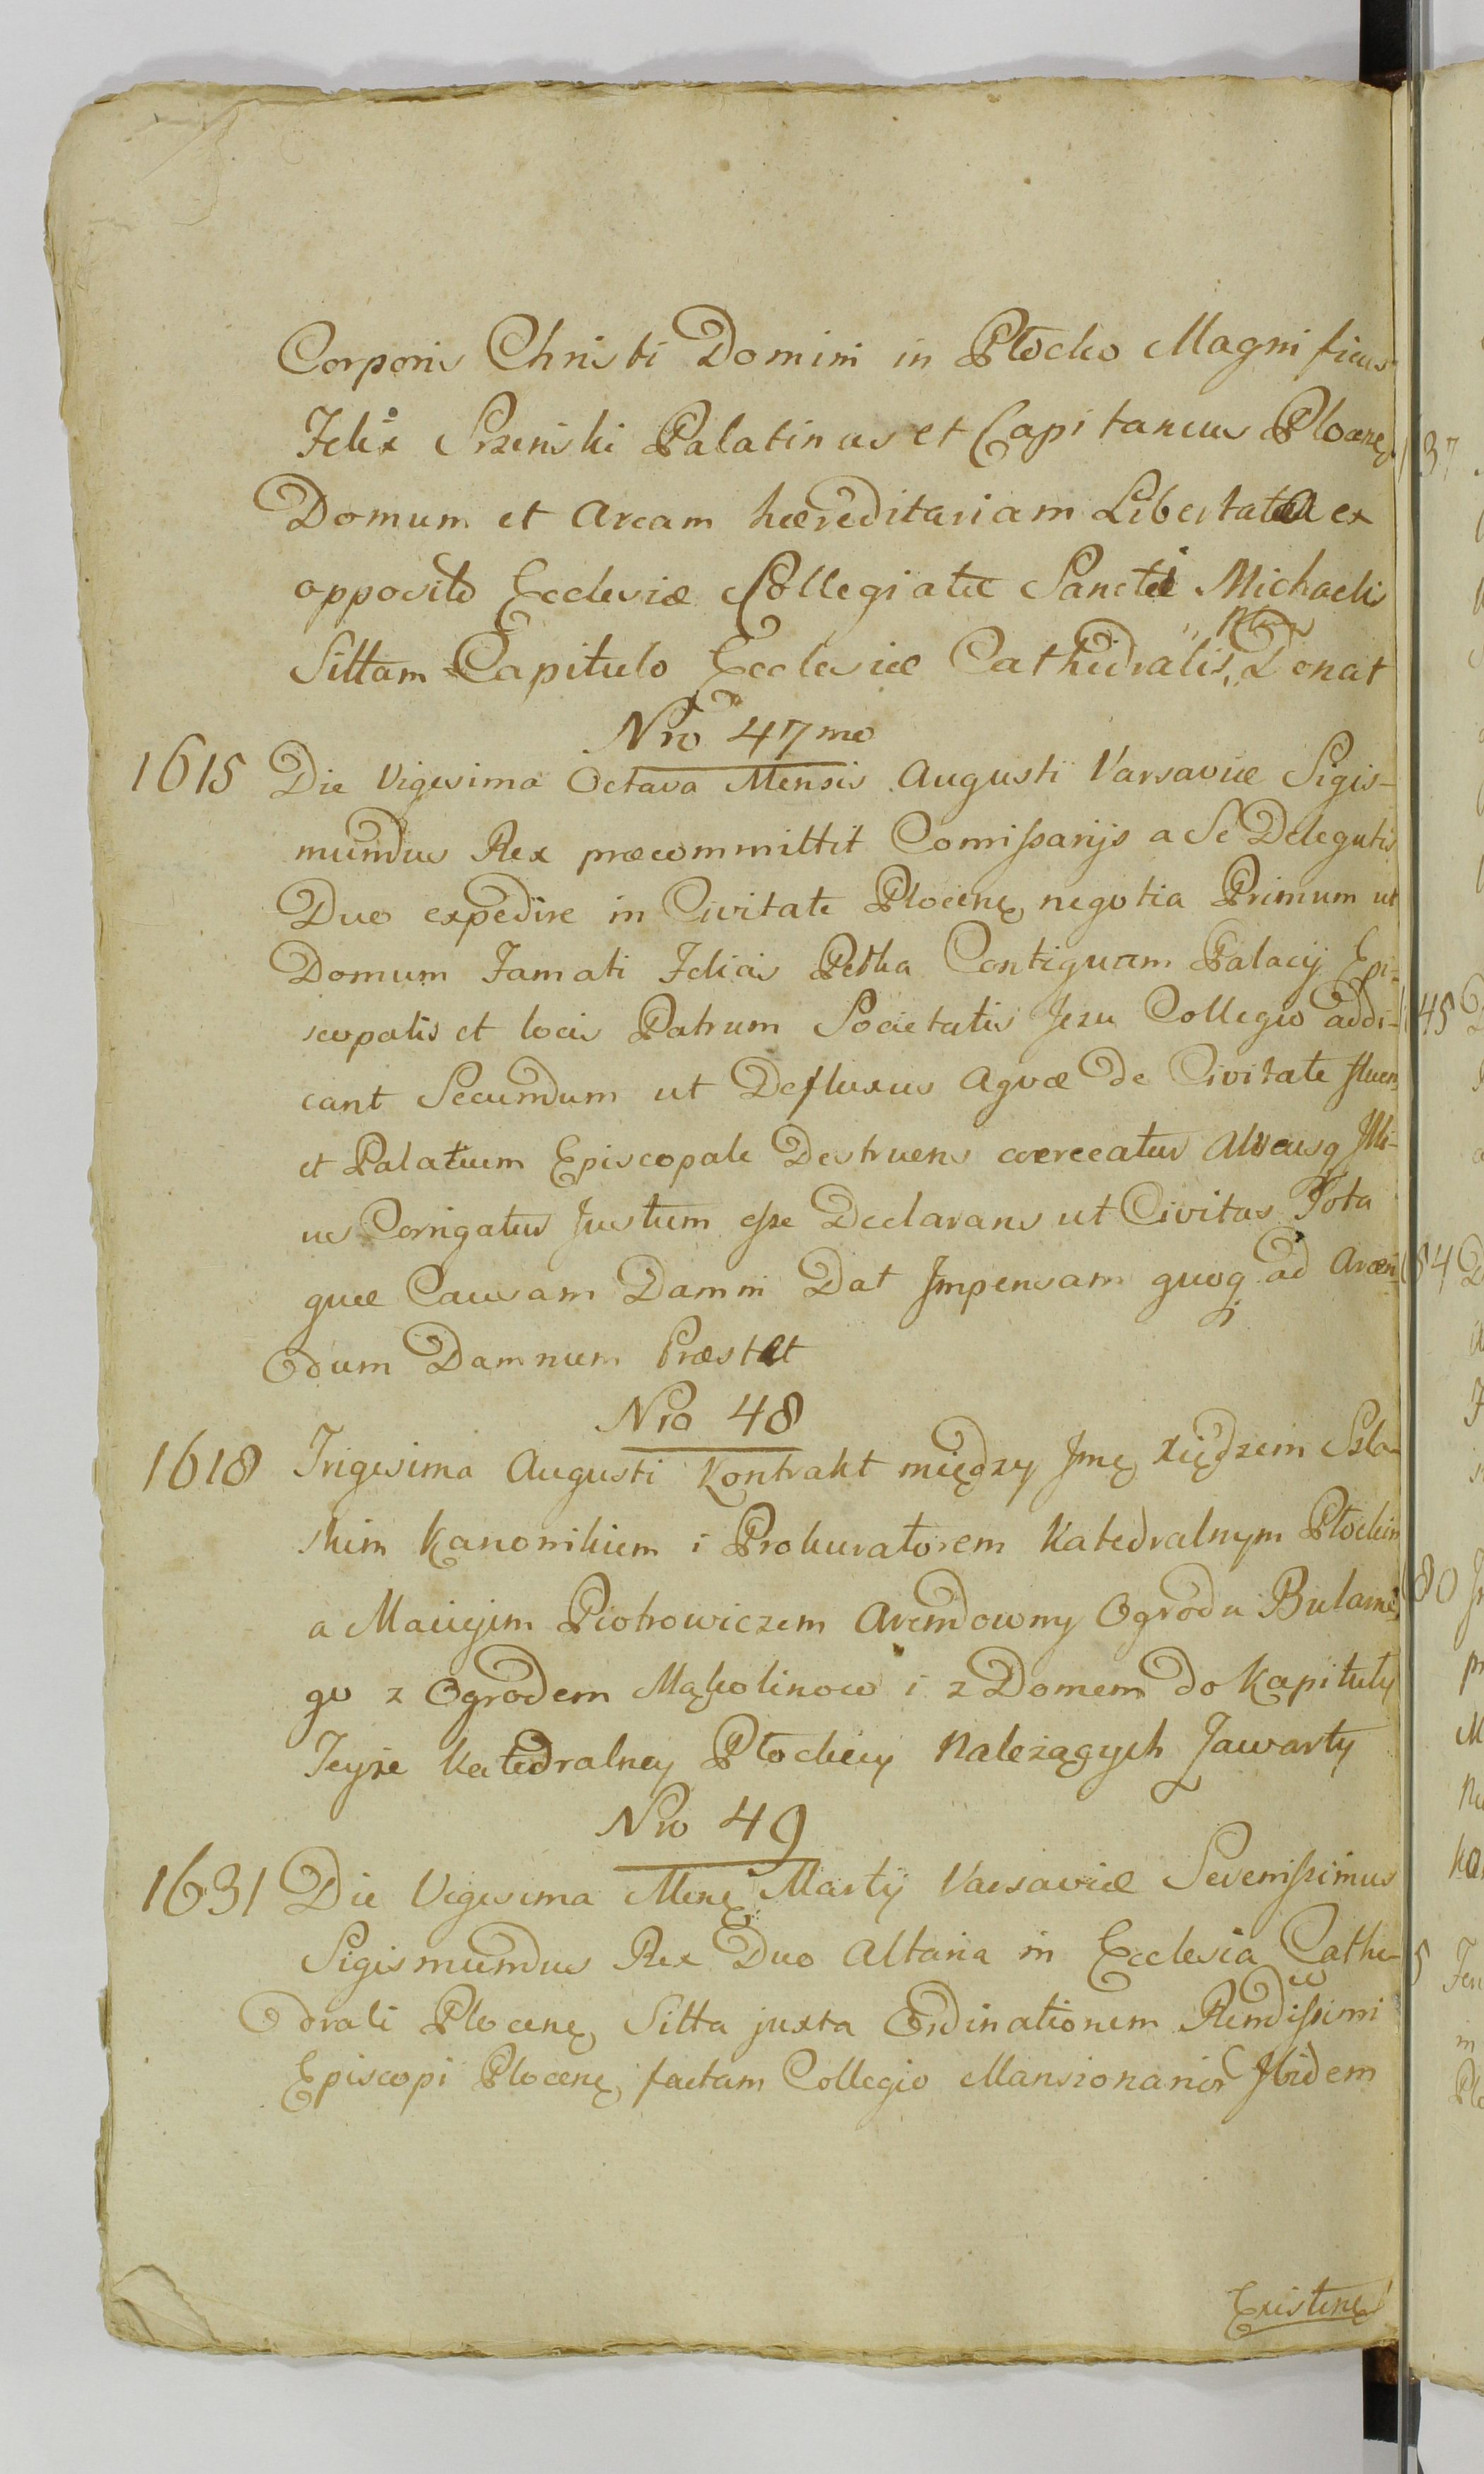 Corporis Christi Domini in Płocko Magnificus
Felix Srzenski Palatinus et Capitaneus Plocenę
Domum et Aream hæreditariam Libertatã ex
opposito Ecclesiæ Collegiatæ Sancti Michaelis
Sittam Capitulo Ecclesiæ Cathedralis Donat
Nro 47mo
1615 Die Vigesima Octava Mensis Augusti Varsaviæ Sigis-
mundus Rex præcommittit Comissarijs a Se Delegatis
Duo expedire in Civitate Plocenę negotia Primum ut
Domum Famati Felicis Petka Contiguam Palacij Epi-
scopalis et locis Patrum Societatis Jezu Collegio addi-
cant Secundum ut Defluxus Aqvæ de Civitate fluens
et Palatium Episcopale Destruens coerceatur Alveusq Illi-
us Corrigatur Justum esse Declarans ut Civitas Tota
quæ Causam Damni Dat Impensam quoq ad Arcen
dum Damnum Præstet
Nro 48
1618 Trigesima Augusti Kontrakt między Jmę Xiędzem Szla-
skim Kanonikiem i Prokuratorem Katedralnym Płockim
a Maciejem Piotrowiczem Arendowny Ogrodu Bulame
go z Ogrodem Mąkolinow i z Domem do Kapituły
Teyże Katedralney Płockiey Należących Zawarty
Nro 49
1631 Die Vigesima Menę Martij Varsaviæ Serenissimus
Sigismundus Rex Duo Altaria in Ecclesia Cathe-
drali Plocenę Sitta juxta Ordinationem Rendissimi
Episcopi Plocenę factam Collegio Mansionarior Ibidem
Existenę